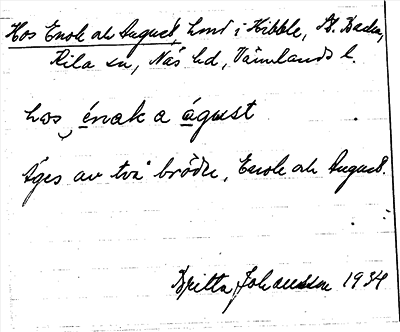 Hos Enok och August, hmd i Kibble, St. Backa,
Kila sn, Näs hd, Värmlands l.
hos énak a águst
Äges av två bröder, Enok och August.
Britta Johansson 1934